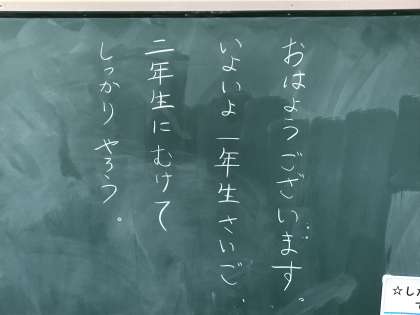 おはようございます。
いよいよ一年生さいご、
二年生にむけて
しっかりやろう。
☆した